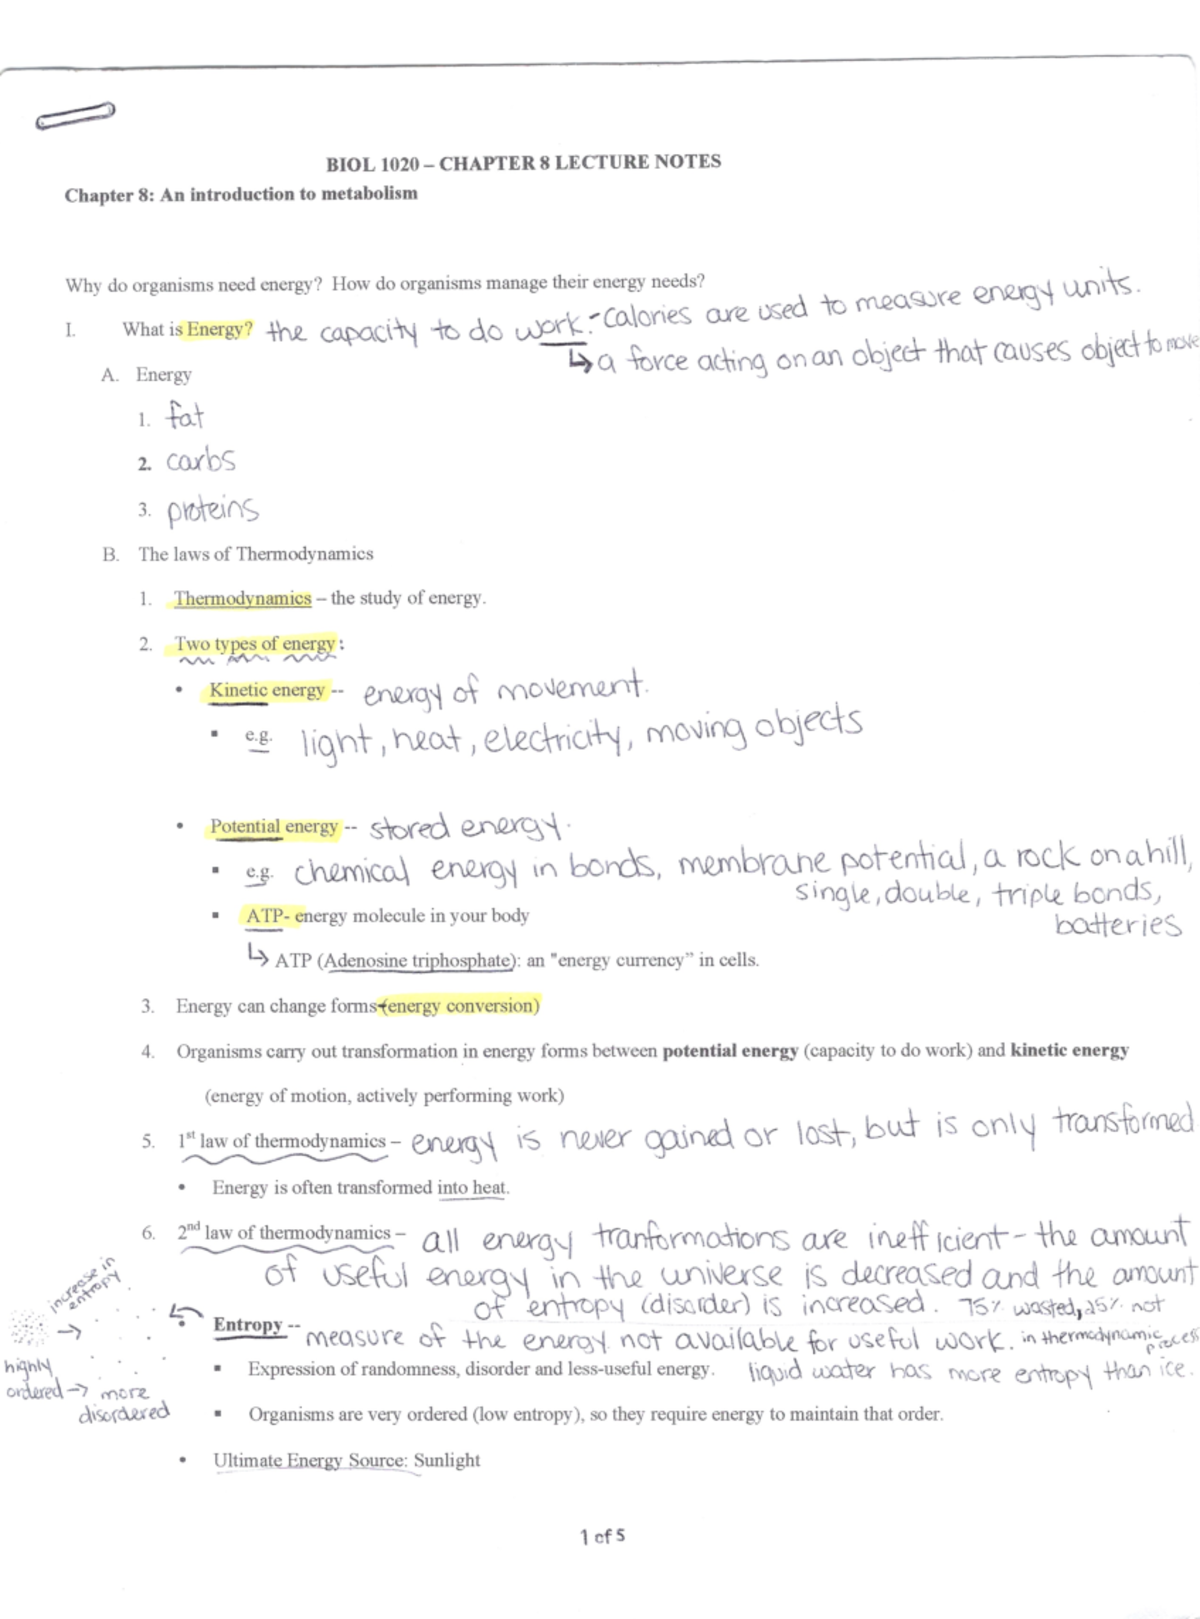 BIOL 1020 – CHAPTER 8 LECTURE NOTES
Chapter 8: An introduction to metabolism
Why do organisms need energy? How do organisms manage their energy needs?
I. What is Energy? the capacity to do work. - calories are used to measure energy units.
↳ a force acting on an object that causes object to move
A. Energy
1. fat
2. carbs
3. proteins
B. The laws of Thermodynamics
1. Thermodynamics – the study of energy.
2. Two types of energy:
• Kinetic energy -- energy of movement.
▪ e.g. light, heat, electricity, moving objects
• Potential energy -- stored energy.
▪ e.g. chemical energy in bonds, membrane potential, a rock on a hill,
single, double, triple bonds,
batteries
▪ ATP- energy molecule in your body
↳ ATP (Adenosine triphosphate): an "energy currency” in cells.
3. Energy can change forms (energy conversion)
4. Organisms carry out transformation in energy forms between potential energy (capacity to do work) and kinetic energy
(energy of motion, actively performing work)
5. 1st law of thermodynamics – energy is never gained or lost, but is only transformed
• Energy is often transformed into heat.
6. 2nd law of thermodynamics – all energy tranformations are inefficient - the amount
of useful energy in the universe is decreased and the amount
of entropy (disorder) is increased. 75% wasted, 25% not
increase in
entropy
→
highly
ordered → more
disordered
• Entropy -- measure of the energy not available for useful work. in thermodynamic
process
▪ Expression of randomness, disorder and less-useful energy. liquid water has more entropy than ice.
▪ Organisms are very ordered (low entropy), so they require energy to maintain that order.
• Ultimate Energy Source: Sunlight
1 of 5